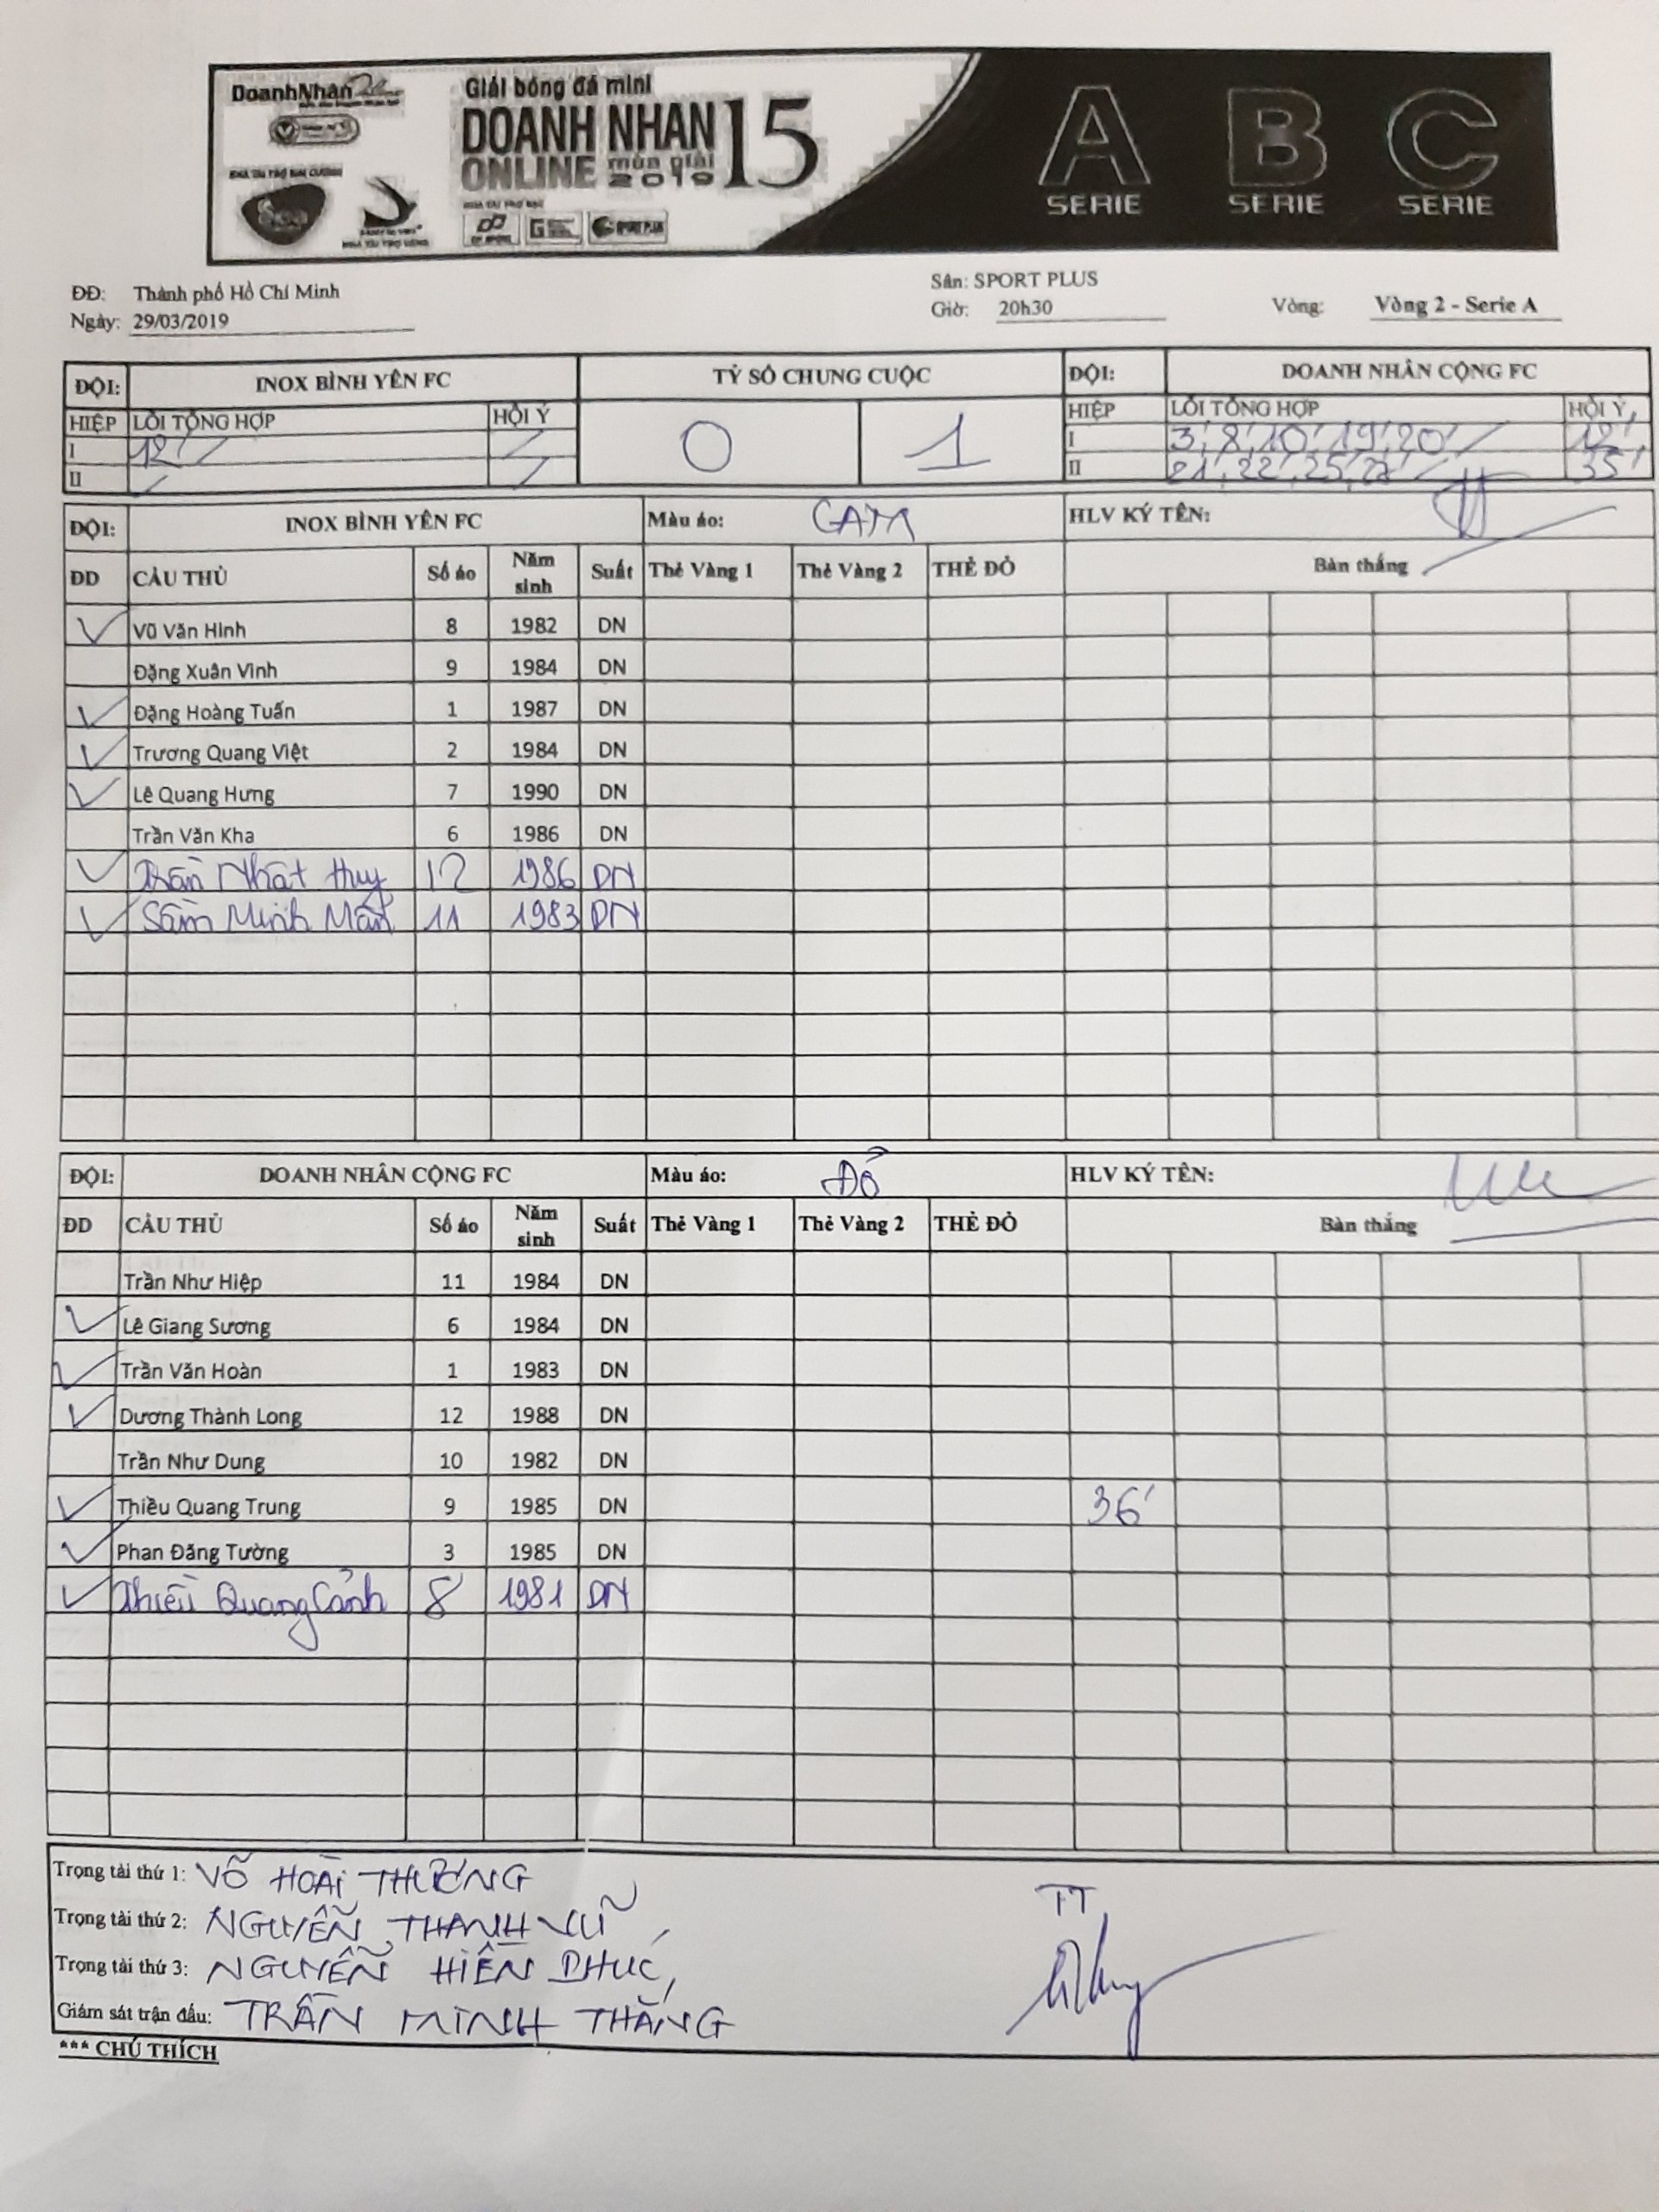 DoanhNhân
Giải bóng đá mini
DOANH NHAN 15
ONLINE mùa giải 2019
Sea
A B C
SERIE SERIE SERIE
ĐĐ: Thành phố Hồ Chí Minh Sân: SPORT PLUS
Ngày: 29/03/2019 Giờ: 20h30 Vòng: Vòng 2 - Serie A
ĐỘI: INOX BÌNH YÊN FC TỶ SỐ CHUNG CUỘC ĐỘI: DOANH NHÂN CỘNG FC
HIỆP LỖI TỔNG HỢP HỘI Ý 0 1 HIỆP LỖI TỔNG HỢP HỘI Ý
I 12' I 3', 8', 10', 19', 20' 12'
II II 21', 22', 25', 35'
ĐỘI: INOX BÌNH YÊN FC Màu áo: CAM HLV KÝ TÊN:
ĐD CẦU THỦ Số áo Năm sinh Suất Thẻ Vàng 1 Thẻ Vàng 2 THẺ ĐỎ Bàn thắng
Vũ Văn Hinh 8 1982 DN
Đặng Xuân Vinh 9 1984 DN
Đặng Hoàng Tuấn 1 1987 DN
Trương Quang Việt 2 1984 DN
Lê Quang Hưng 7 1990 DN
Trần Văn Kha 6 1986 DN
Trần Nhật Huy 12 1986 DN
Sầm Minh Mẫn 11 1983 DN
ĐỘI: DOANH NHÂN CỘNG FC Màu áo: ĐỎ HLV KÝ TÊN:
ĐD CẦU THỦ Số áo Năm sinh Suất Thẻ Vàng 1 Thẻ Vàng 2 THẺ ĐỎ Bàn thắng
Trần Như Hiệp 11 1984 DN
Lê Giang Sương 6 1984 DN
Trần Văn Hoàn 1 1983 DN
Dương Thành Long 12 1988 DN
Trần Như Dung 10 1982 DN
Thiều Quang Trung 9 1985 DN 36'
Phan Đăng Tường 3 1985 DN
Thiều Quang Cảnh 8 1981 DN
Trọng tài thứ 1: VÕ HOÀI THƯƠNG
Trọng tài thứ 2: NGUYỄN THANH VŨ TT
Trọng tài thứ 3: NGUYỄN HIỀN PHÚC
Giám sát trận đấu: TRẦN MINH THẮNG
*** CHÚ THÍCH